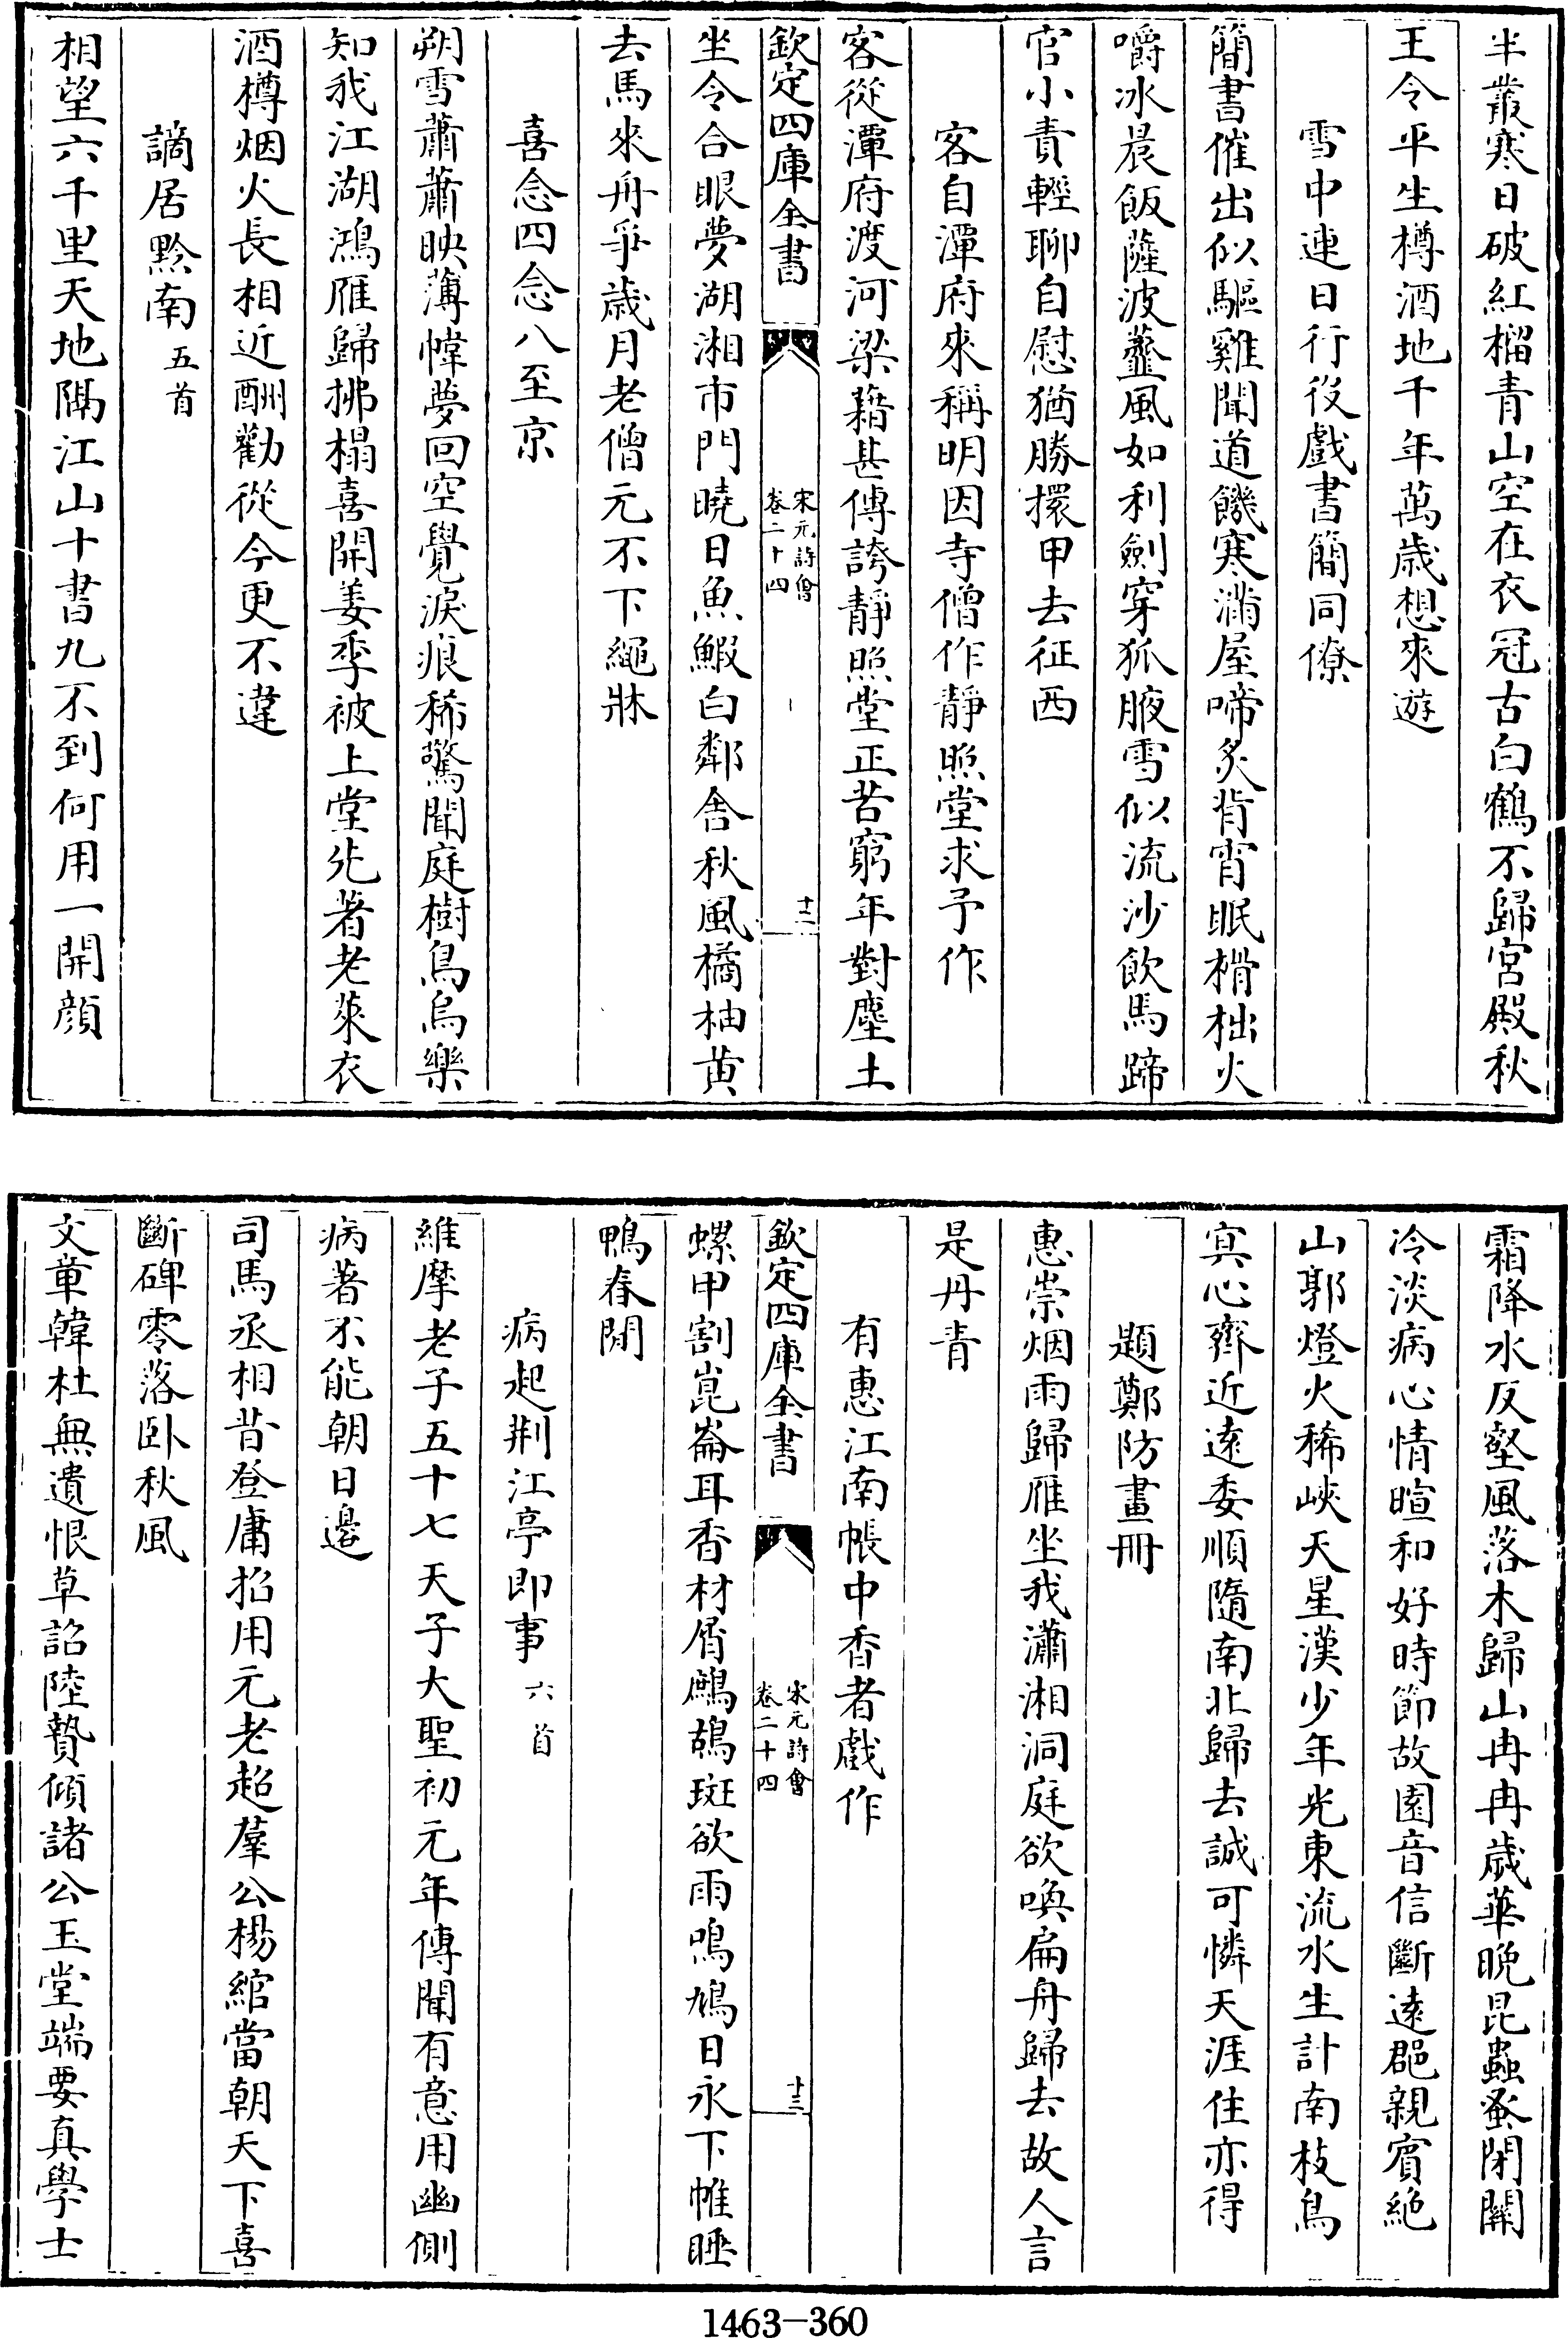 半叢寒日破紅榴青山空在衣冠古白鶴不歸宮殿秋
王令平生樽酒地千年萬歲想來遊
雪中連日行役戲書簡同僚
簡書催出似驅雞聞道饑寒滿屋啼炙背宵眠榾柮火
嚼冰晨飯薩波虀風如利劍穿狐腋雪似流沙飲馬蹄
官小責輕聊自慰猶勝擐甲去征西
客自潭府來稱明因寺僧作靜照堂求予作
客從潭府渡河梁籍甚傳誇靜照堂正苦窮年對塵土
欽定四庫全書
宋元詩會
卷二十四
十二
坐令合眼夢湖湘市門曉日魚鰕白鄰舍秋風橘柚黃
去馬來舟爭歲月老僧元不下繩牀
喜念四念八至京
朔雪蕭蕭映薄幃夢回空覺淚痕稀驚聞庭樹鳥烏樂
知我江湖鴻雁歸拂榻喜開姜季被上堂先著老萊衣
酒樽烟火長相近酬勸從今更不違
謫居黔南五首
相望六千里天地隔江山十書九不到何用一開顔
霜降水反壑風落木歸山冉冉歲華晚昆蟲蚤閉關
冷淡病心情暄和好時節故園音信斷遠郡親賓絕
山郭燈火稀峽天星漢少年光東流水生計南枝鳥
寘心齊近遠委順隨南北歸去誠可憐天涯住亦得
題鄭防畫冊
惠崇烟雨歸雁坐我瀟湘洞庭欲喚扁舟歸去故人言
是丹青
有惠江南帳中香者戲作
欽定四庫全書
宋元詩會
卷二十四
十三
螺甲割崑崙耳香材屑鷓鴣斑欲雨鳴鳩日永下帷睡
鴨春閒
病起荆江亭即事六首
維摩老子五十七天子大聖初元年傳聞有意用幽側
病著不能朝日邊
司馬丞相昔登庸招用元老超羣公楊綰當朝天下喜
斷碑零落卧秋風
文章韓杜無遺恨草詔陸贄傾諸公玉堂端要真學士
1463-360